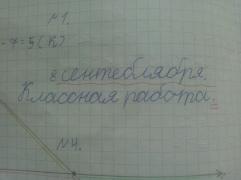 №1.
-7=5(К)
8 сентебляября.
Классная работа.
№4.